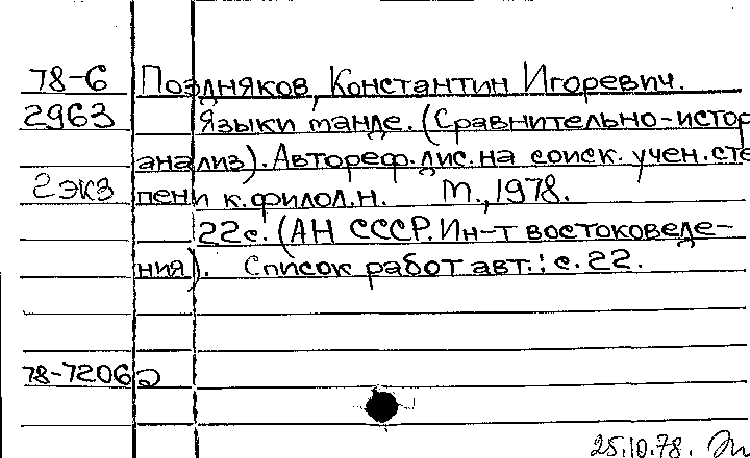 78-6 Поздняков, Константин Игоревич.
2963 Языки манде. (Сравнительно-истор
анализ). Автореф. дис. на соиск. учен. сте
2 экз пени к. филол. н. М., 1978.
22 с. (АН СССР. Ин-т востоковеде-
ния). Список работ авт.: с. 22.
78-7206а
25.10.78.